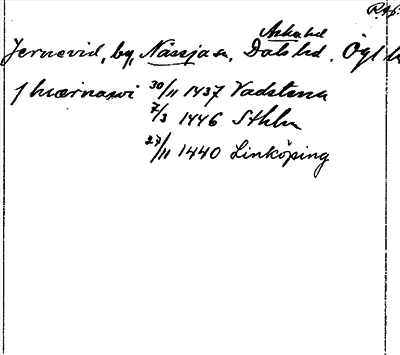 R.A.p.
Aska hd
Jernevid, by, Nässja sn, Dals hd. Ögl
j hiærnawi 30/11 1437 Vadstena
7/3 1446 Sthlm
27/11 1440 Linköping